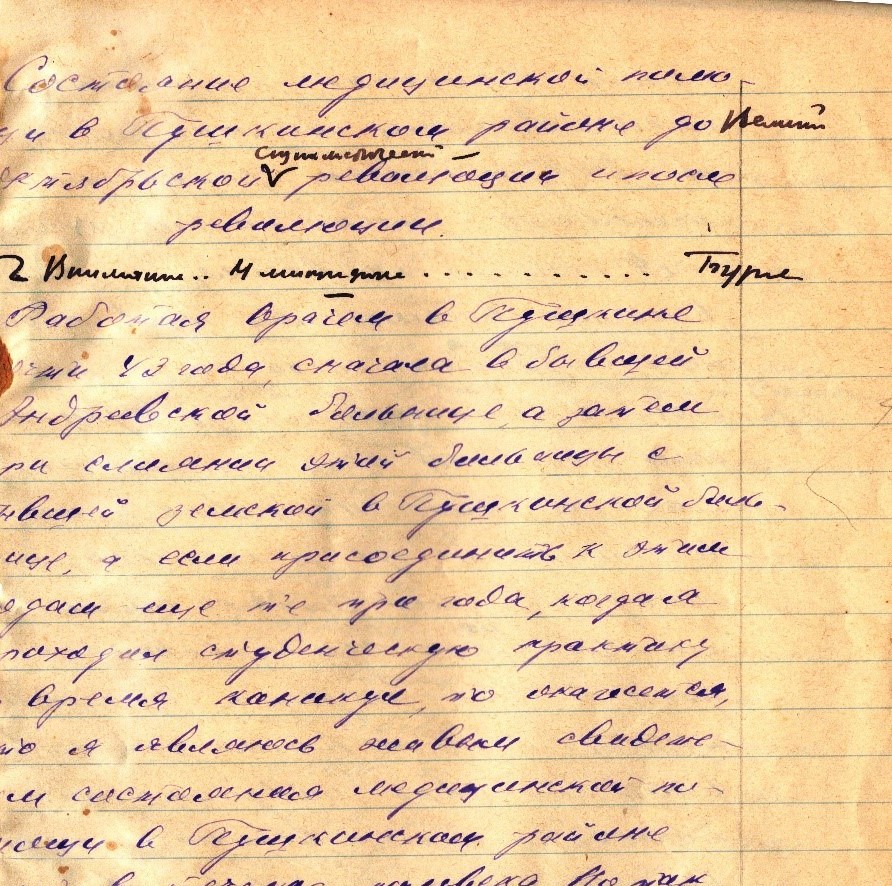 Состояние медицинской помо-
щи в Пушкинском районе до Великой
социалистической
октябрьской революции и после
революции.
Работая врачем в Пушкине
почти 43 года, сначала в бывшей
Андреевской больнице, а затем
при слиянии этой больницы с
бывшей земской в Пушкинской боль-
нице, а если присоединить к этим
годам еще те три года, когда я
проходил студенческую практику
во время каникул, то окажется,
что я являюсь живым свидете-
лем состояния медицинской по-
мощи в Пушкинском районе
в течение полувека. Но так